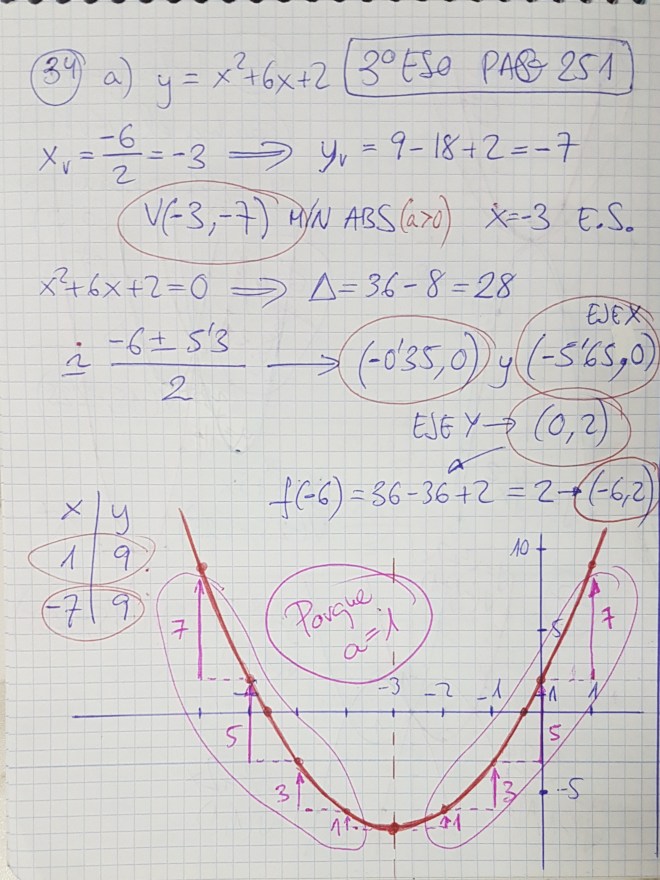 34 a) y = x²+6x+2 3º ESO PAG 251
xᵥ = -6/2 = -3 ⟹ yᵥ = 9-18+2 = -7
V(-3,-7) MIN ABS (a>0) x=-3 E.S.
x²+6x+2=0 ⟹ Δ=36-8=28
EJE X
-6±5'3/2 → (-0'35,0) y (-5'65,0)
EJE Y → (0,2)
f(-6)=36-36+2=2→(-6,2)
x | y
1 | 9
-7 | 9
10
Porque
a=1
7
5
7
-3 -2 -1 1 1
5
5
3
3
-5
1
1